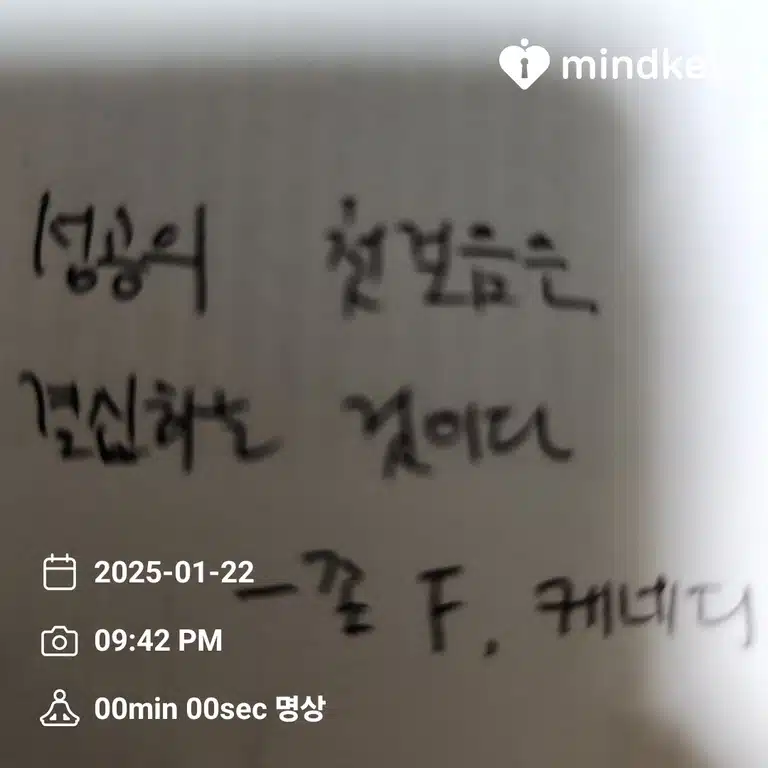 mindke
성공의 첫걸음은
결심하는 것이다
- 존 F. 케네디
2025-01-22
09:42 PM
00min 00sec 명상